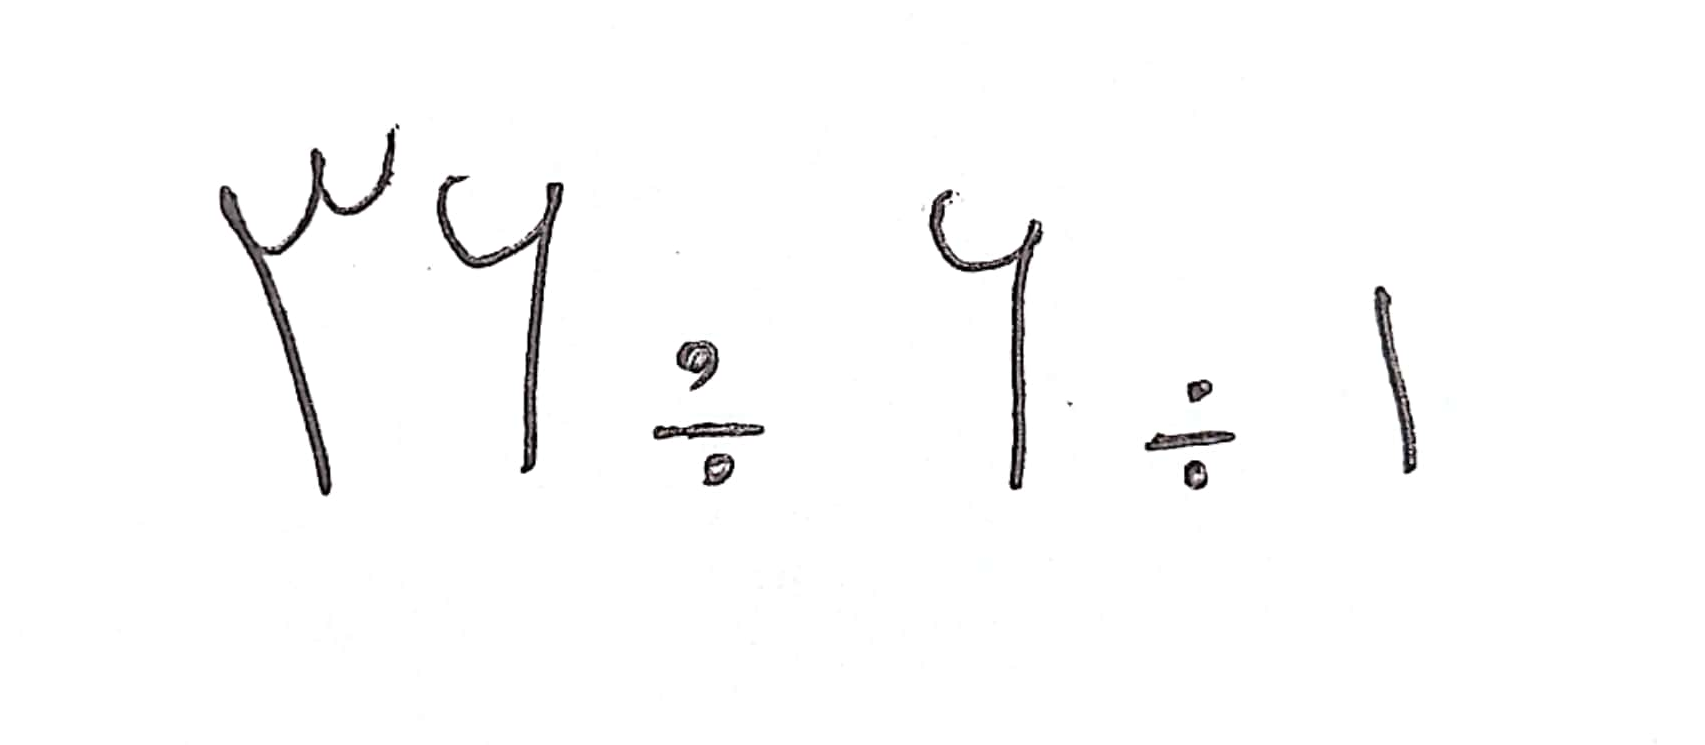 ۳۶ ÷ ۶ ÷ ۱